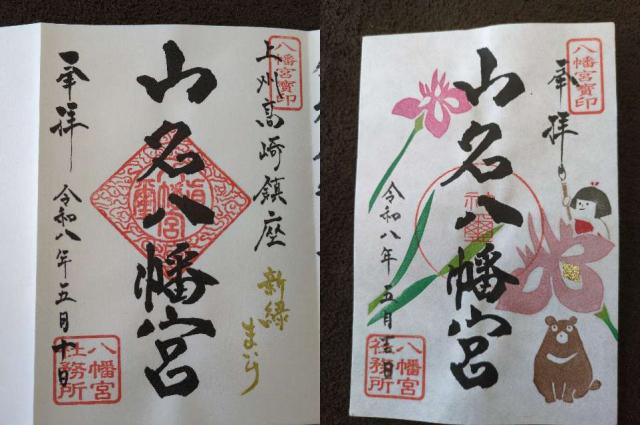 八幡宮寶印
上州高崎鎮座
新緑
山名八幡宮
奉拝
令和八年五月十日
八幡宮
社務所
八幡宮寶印
奉拝
山名八幡宮
令和八年五月吉日
八幡宮
社務所